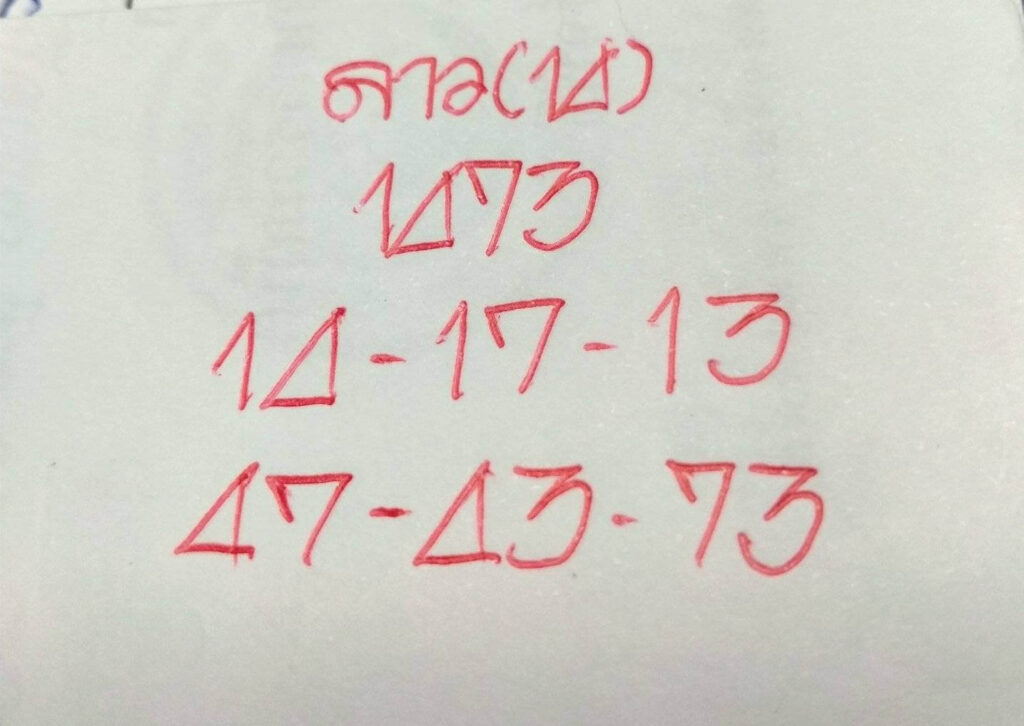 ลาว(14)
1473
14-17-13
47-43-73